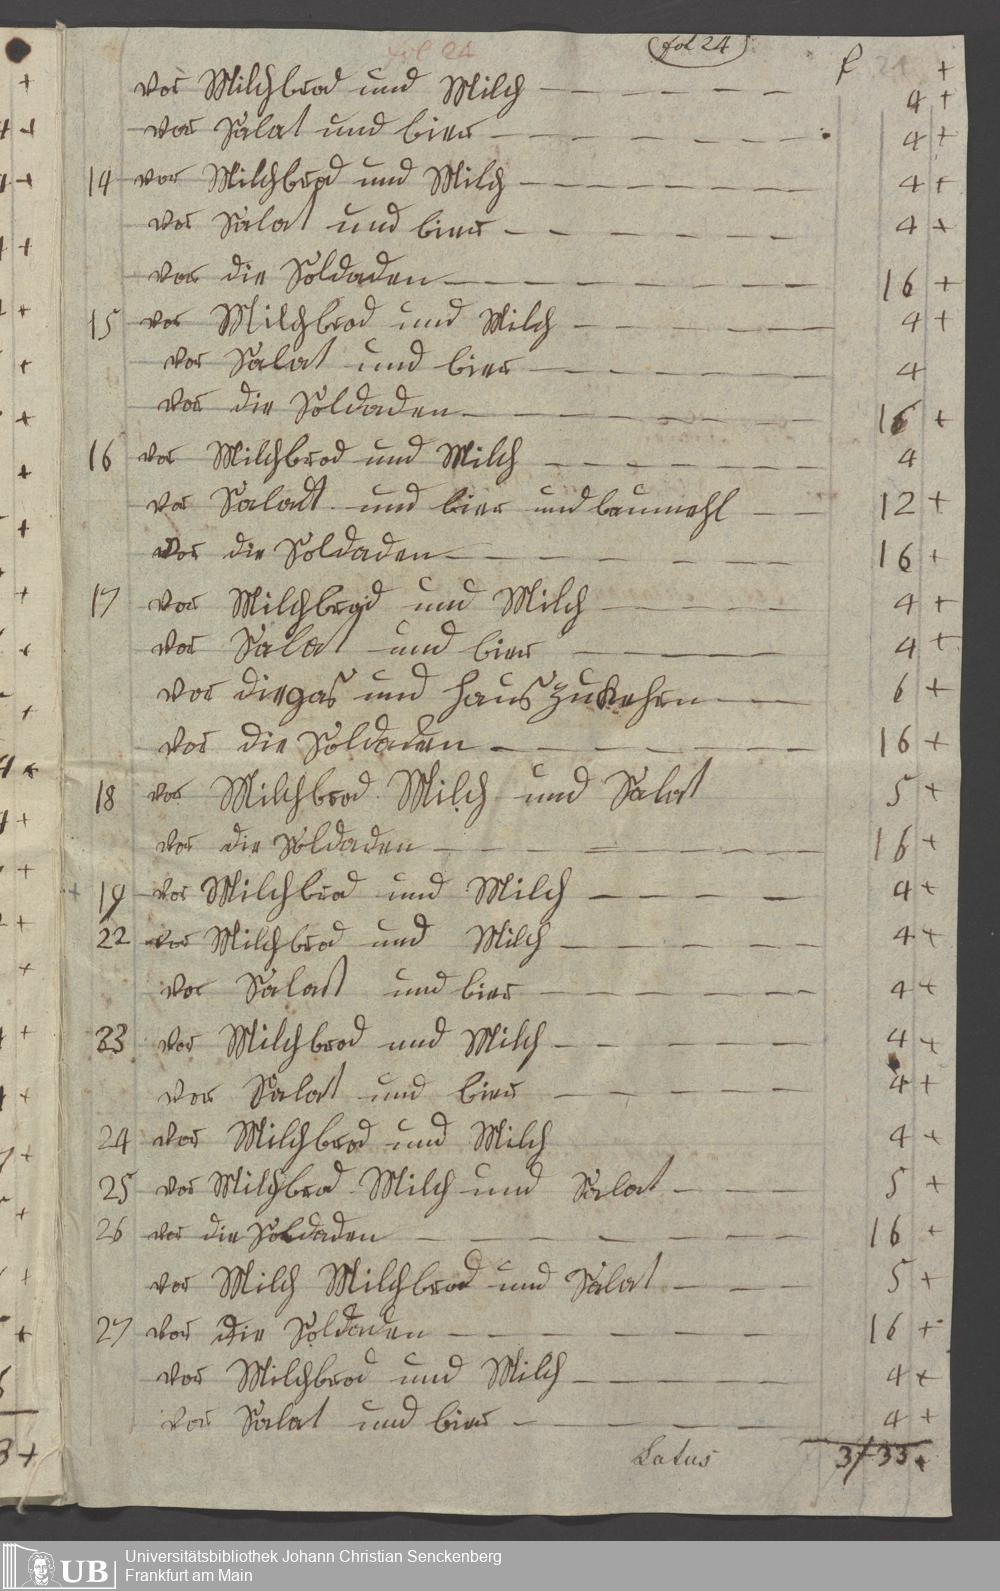 fol 24
fol 24
f 24 +
vor Milchbrod und Milch — — — — — 4 +
vor Salat und bier — — — — — 4 +
14 vor Milchbrod und Milch — — — — — 4 +
vor Salat und bier — — — — — 4 +
vor die Soldaden — — — — — 16 +
15 vor Milchbrod und Milch — — — — 4 +
vor Salat und bier — — — — — 4
vor die Soldaden — — — — — 16 +
16 vor Milchbrod und Milch — — — — — 4
vor Salatt und bier und baumehl — — 12 +
vor die Soldaden — — — — — 16 +
17 vor Milchbrod und Milch — — — — 4 +
vor Salat und bier — — — — 4 +
vor die gas und haus zu kehren — — 6 +
vor die Soldaden — — — — — 16 +
18 vor Milchbrod Milch und Salat 5 +
vor die Soldaden — — — — — 16 +
19 vor Milchbrod und Milch — — — — 4 +
22 vor Milchbrod und Milch — — — — — 4 +
vor Salatt und bier — — — — — 4 +
23 vor Milchbrod und Milch — — — — — 4 +
vor Salat und bier — — — — — 4 +
24 vor Milchbrod und Milch 4 +
25 vor Milchbrod Milch und Salat — — — 5 +
26 vor die Soldaden — — — — — 16 +
vor Milch Milchbrod und Salat — — — 5 +
27 vor die Soldaden — — — — — 16 +
vor Milchbrod und Milch — — — — 4 +
vor Salat und bier — — — — — 4 +
Latus 3/33 +
UB Universitätsbibliothek Johann Christian Senckenberg
Frankfurt am Main